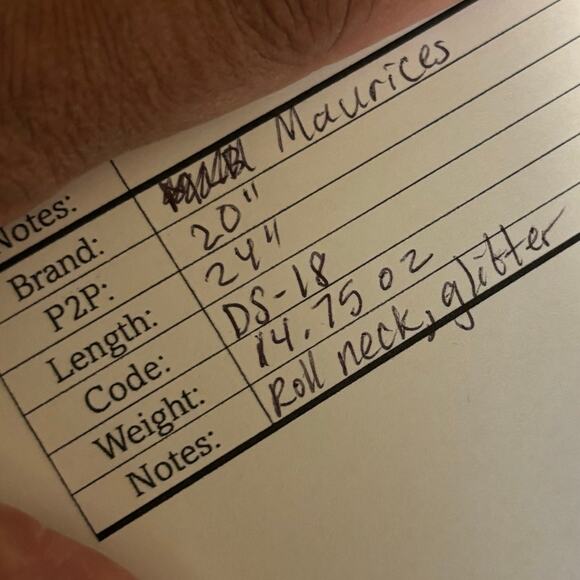 Notes:
Brand: Maurices
P2P: 20"
Length: 24"
Code: DS-18
Weight: 14.75 oz
Notes: Roll neck, glitter